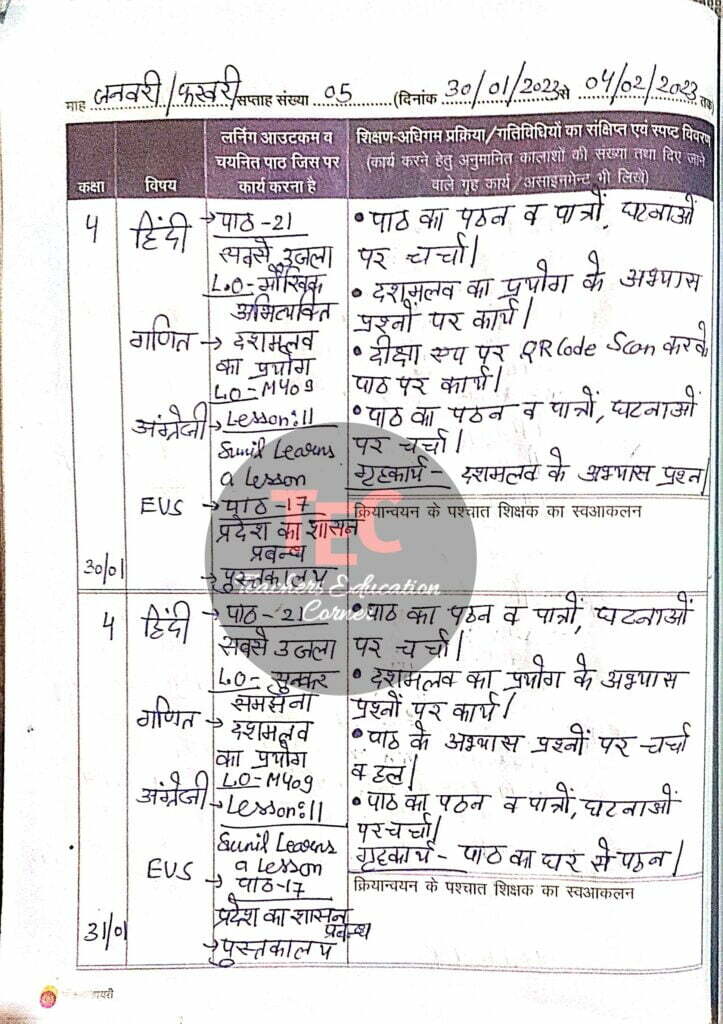 माह जनवरी/फरवरी सप्ताह संख्या 05 (दिनांक 30/01/2023 से 04/02/2023 तक)
कक्षा
विषय
लर्निंग आउटकम व
चयनित पाठ जिस पर
कार्य करना है
शिक्षण-अधिगम प्रक्रिया/गतिविधियों का संक्षिप्त एवं स्पष्ट विवरण
(कार्य करने हेतु अनुमानित कालाशों की संख्या तथा दिए जाने
वाले गृह कार्य/असाइनमेन्ट भी लिखें)
4
हिंदी
→पाठ-21
सबसे उजला
L.O-मौखिक
अभिव्यक्ति
गणित → दशमलव
का प्रयोग
LO-M409
अंग्रेजी → Lesson:11
Sunil Learns
a Lesson
EVS → पाठ-17
प्रदेश का शासन
प्रबन्ध
→पुस्तकालय
30/01
• पाठ का पठन व पात्रों, घटनाओं
पर चर्चा।
• दशमलव का प्रयोग के अभ्यास
प्रश्नों पर कार्य।
• दीक्षा एप पर QR Code Scan करके
पाठ पर कार्य।
• पाठ का पठन व पात्रों, घटनाओं
पर चर्चा।
गृहकार्य- दशमलव के अभ्यास प्रश्न।
क्रियान्वयन के पश्चात शिक्षक का स्वआकलन
TEC
Teachers Education
Corner
4
हिंदी
→ पाठ-21
सबसे उजला
LO- सुनकर
समझना
गणित → दशमलव
का प्रयोग
LO-M409
अंग्रेजी → Lesson:11
Sunil Learns
a Lesson
EVS → पाठ-17
प्रदेश का शासन
प्रबन्ध
→पुस्तकालय
31/01
• पाठ का पठन व पात्रों, घटनाओं
पर चर्चा।
• दशमलव का प्रयोग के अभ्यास
प्रश्नों पर कार्य।
• पाठ के अभ्यास प्रश्नों पर चर्चा
व हल।
• पाठ का पठन व पात्रों, घटनाओं
पर चर्चा।
गृहकार्य- पाठ का घर से पठन।
क्रियान्वयन के पश्चात शिक्षक का स्वआकलन